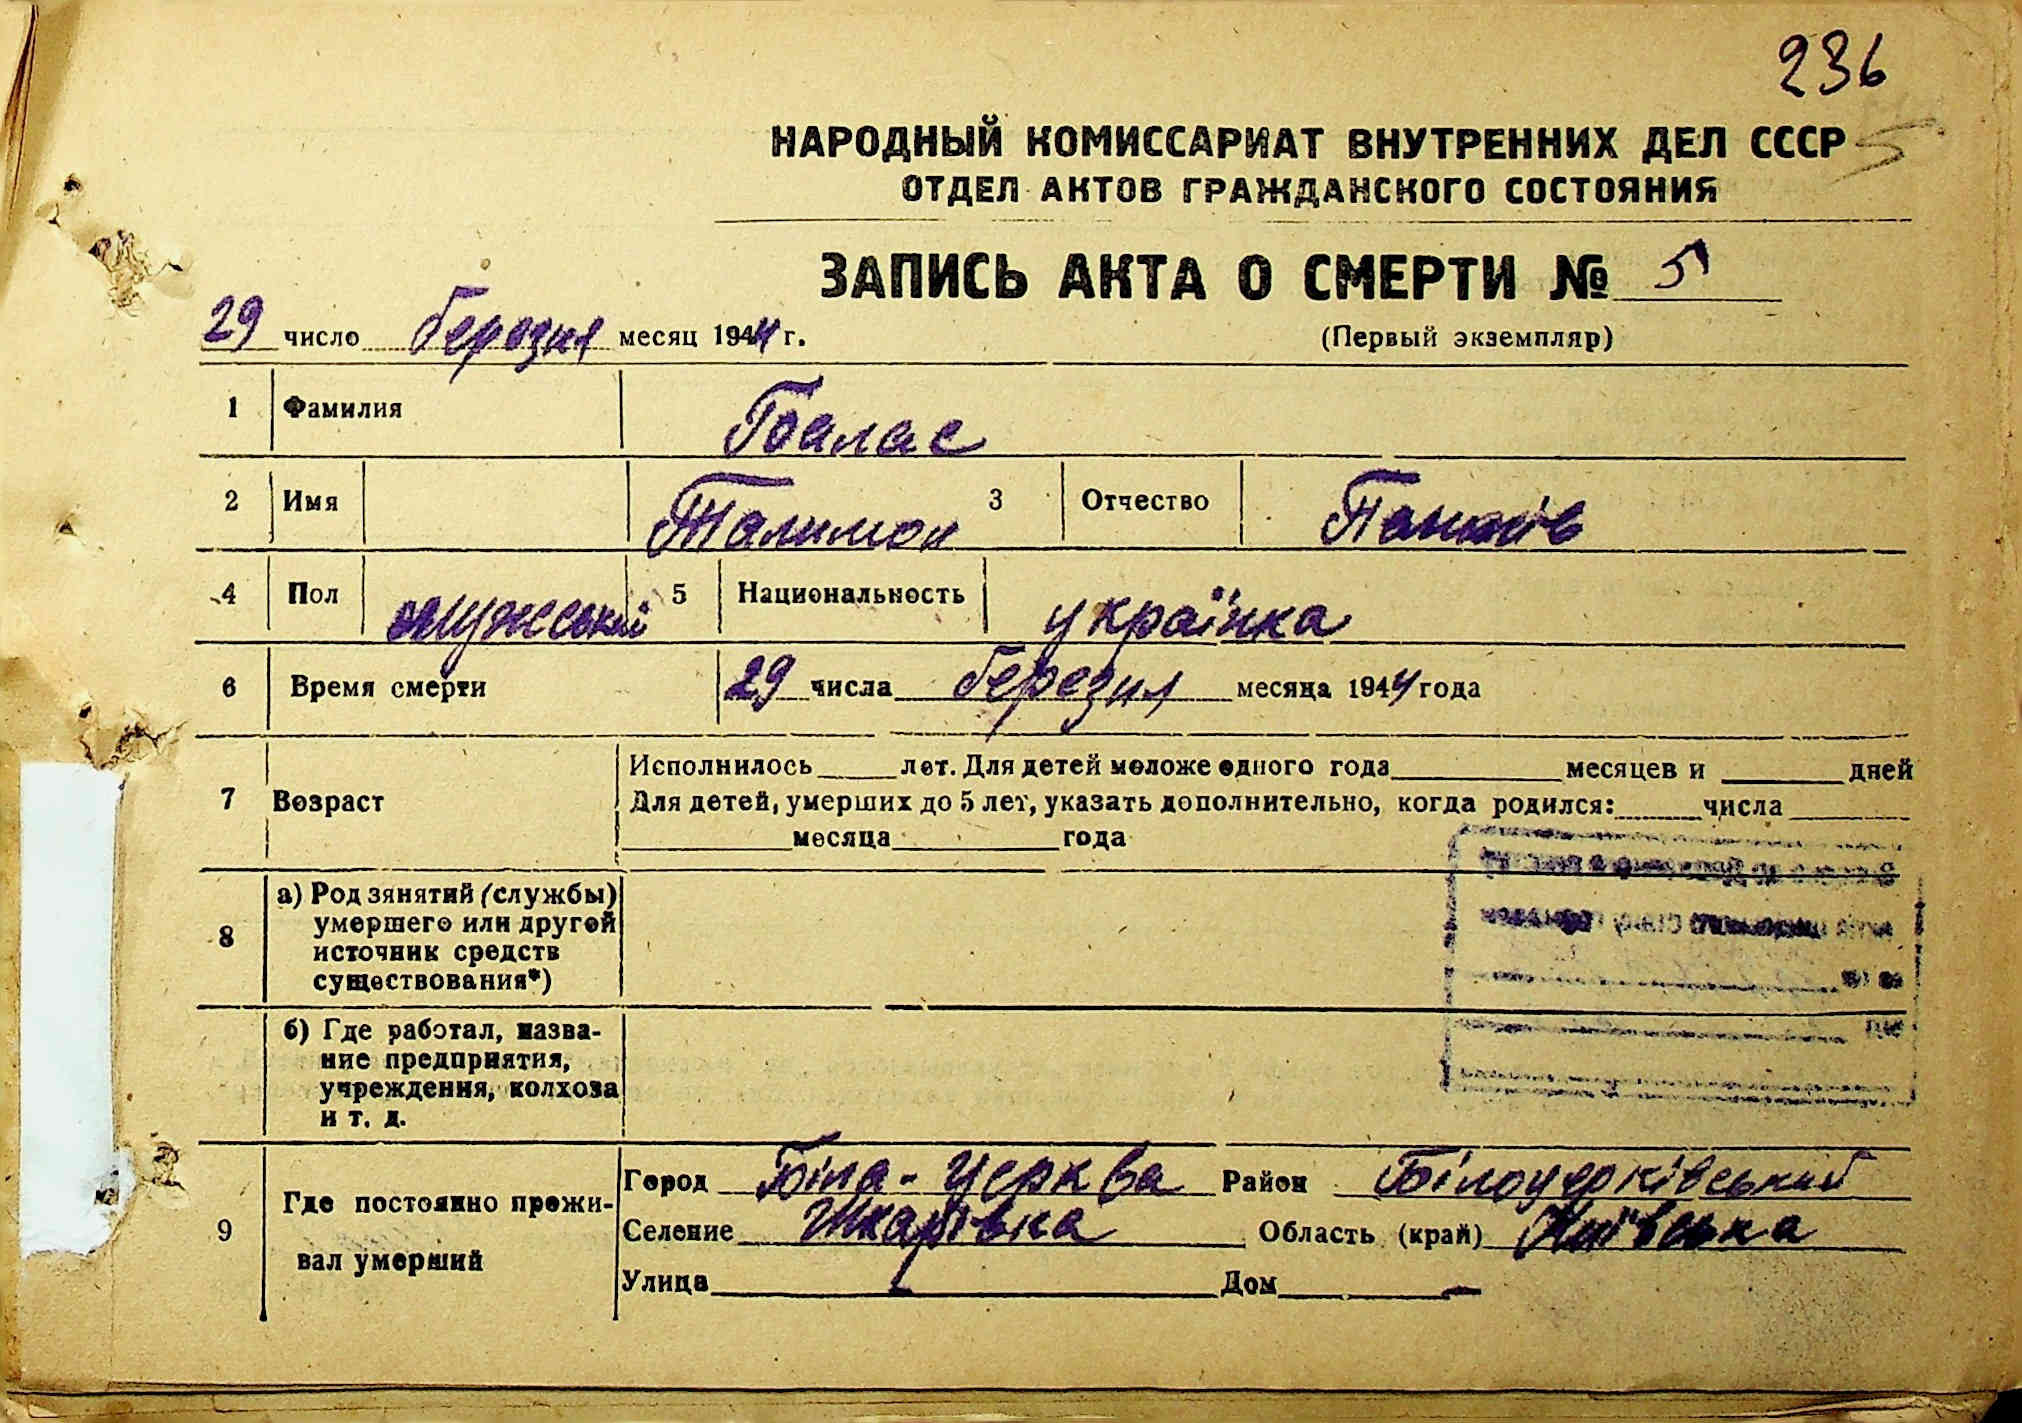 236
НАРОДНЫЙ КОМИССАРИАТ ВНУТРЕННИХ ДЕЛ СССР 5
ОТДЕЛ АКТОВ ГРАЖДАНСКОГО СОСТОЯНИЯ
ЗАПИСЬ АКТА О СМЕРТИ № 5
29 число березня месяц 1944 г. (Первый экземпляр)
1 Фамилия Балас
2 Имя Талимон 3 Отчество
4 Пол мужський 5 Национальность українка
6 Время смерти 29 числа березня месяца 1944 года
7 Возраст Исполнилось лет. Для детей моложе одного года месяцев и дней
Для детей, умерших до 5 лет, указать дополнительно, когда родился: числа
месяца года
8 а) Род зянятий (службы)
умершего или другой
источник средств
существования*)
б) Где работал, назва-
ние предприятия,
учреждения, колхоза
и т. д.
9 Где постоянно прожи-
вал умерший
Город Біла-Церква Район Білоцерківський
Селение Шкарівка Область (край) Київська
Улица Дом —